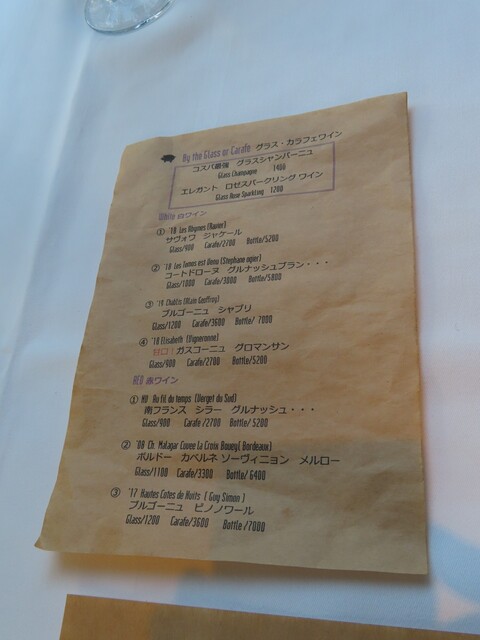 By the Glass or Carafe グラス・カラフェワイン
コスパ最強 グラスシャンパーニュ
Glass Champagne 1400
エレガント ロゼスパークリング ワイン
Glass Rose Sparkling 1200
White 白ワイン
① '18 Les Abymes (Ravier)
サヴォワ ジャケール
Glass/900 Carafe/2700 Bottle/5200
② '18 Les Temps est Venu (Stephane ogier)
コートドローヌ グルナッシュブラン・・・
Glass/1000 Carafe/3000 Bottle/5800
③ '19 Chablis (Alain Geoffroy)
ブルゴーニュ シャブリ
Glass/1200 Carafe/3600 Bottle/ 7000
④ '18 Elisabeth (Vigneronne)
甘口！ガスコーニュ グロマンサン
Glass/900 Carafe/2700 Bottle/5200
RED 赤ワイン
① NV Au fil du temps (Verget du Sud)
南フランス シラー グルナッシュ・・・
Glass/900 Carafe /2700 Bottle/ 5200
② '08 Ch. Malagar Cuvee La Croix Bouey( Bordeaux)
ボルドー カベルネ ソーヴィニョン メルロー
Glass/1100 Carafe/3300 Bottle/ 6400
③ '17 Hautes Cotes de Nuits ( Guy Simon )
ブルゴーニュ ピノノワール
Glass/1200 Carafe/3600 Bottle /7000